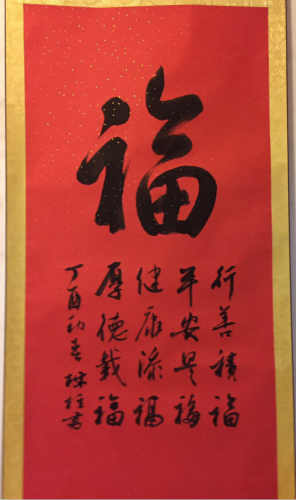 福
行善積福
平安是福
健康添福
厚德載福
丁酉初春